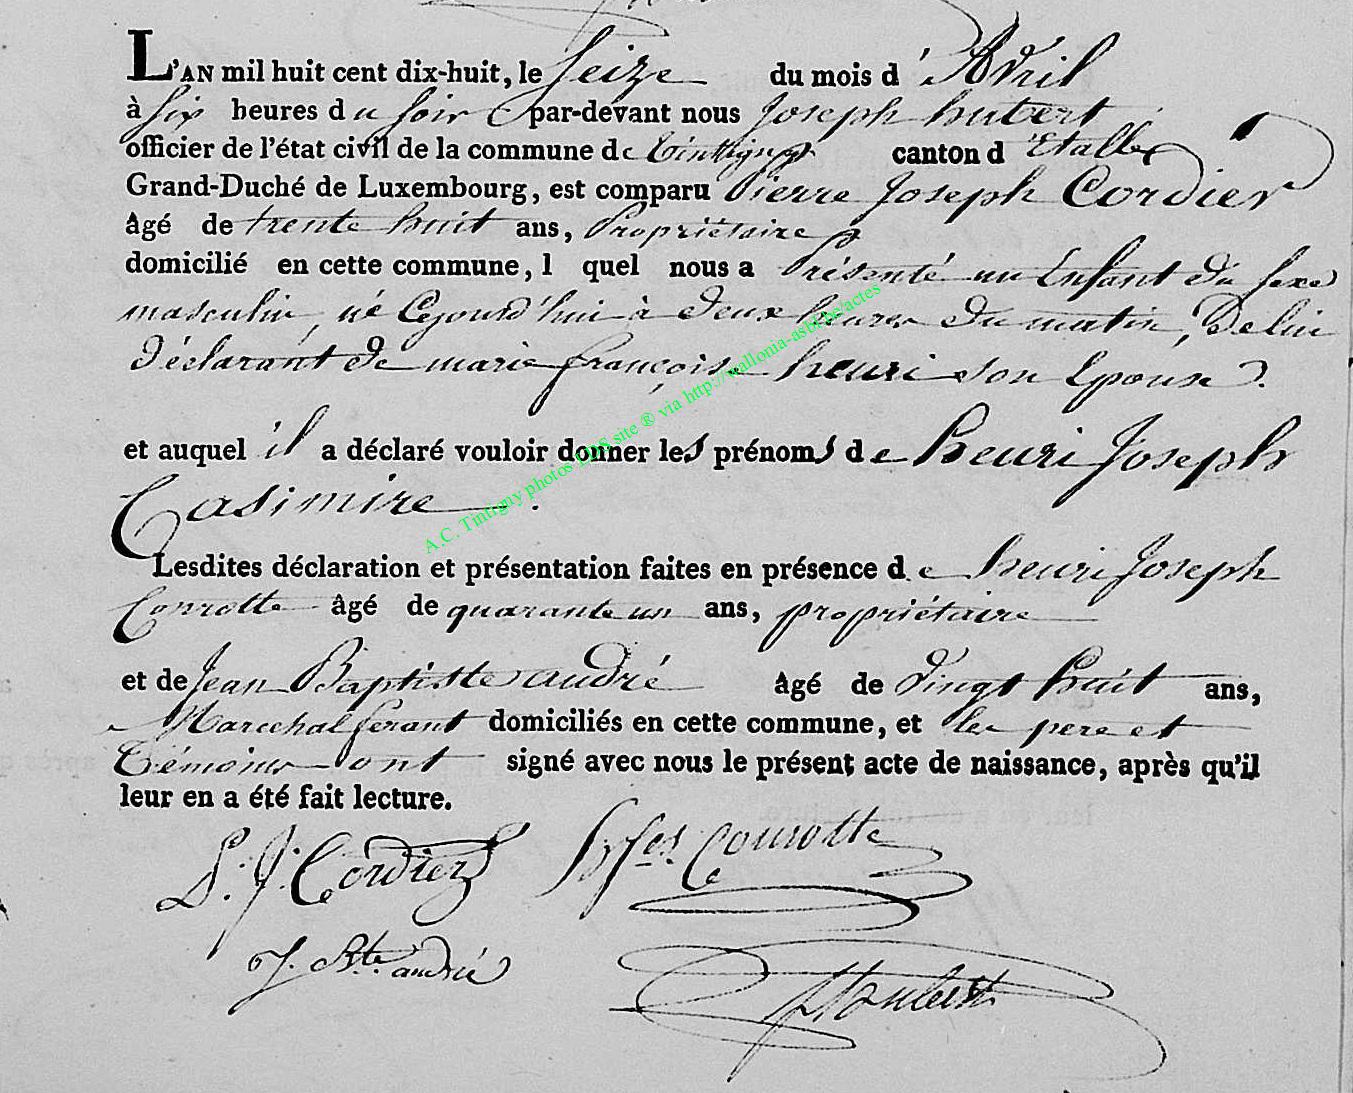 L'AN mil huit cent dix-huit, le Seize du mois d'Avril
à Six heures du Soir par-devant nous Joseph hubert
officier de l'état civil de la commune de Tintigny canton d'Etalle
Grand-Duché de Luxembourg, est comparu Pierre Joseph Cordier
âgé de trente huit ans, Propriétaire
domicilié en cette commune, l quel nous a Présenté un Enfant du Sexe
masculin, né Cejourd'hui à deux heures Du matin, De lui
déclarant De marie françoise henri son Epouse.
et auquel il a déclaré vouloir donner les prénoms de henri Joseph
Casimire.
Lesdites déclaration et présentation faites en présence de henri Joseph
Conrotte âgé de quarante un ans, propriétaire
et de Jean Baptiste andré âgé de Vingt huit ans,
Marechal ferant domiciliés en cette commune, et les pere et
Témoins ont signé avec nous le présent acte de naissance, après qu'il
leur en a été fait lecture.
P. J. Cordier
Conrotte
J. Bte. andré
A.C. Tintigny photos LDS site ® via http://wallonia-asbl.be/actes